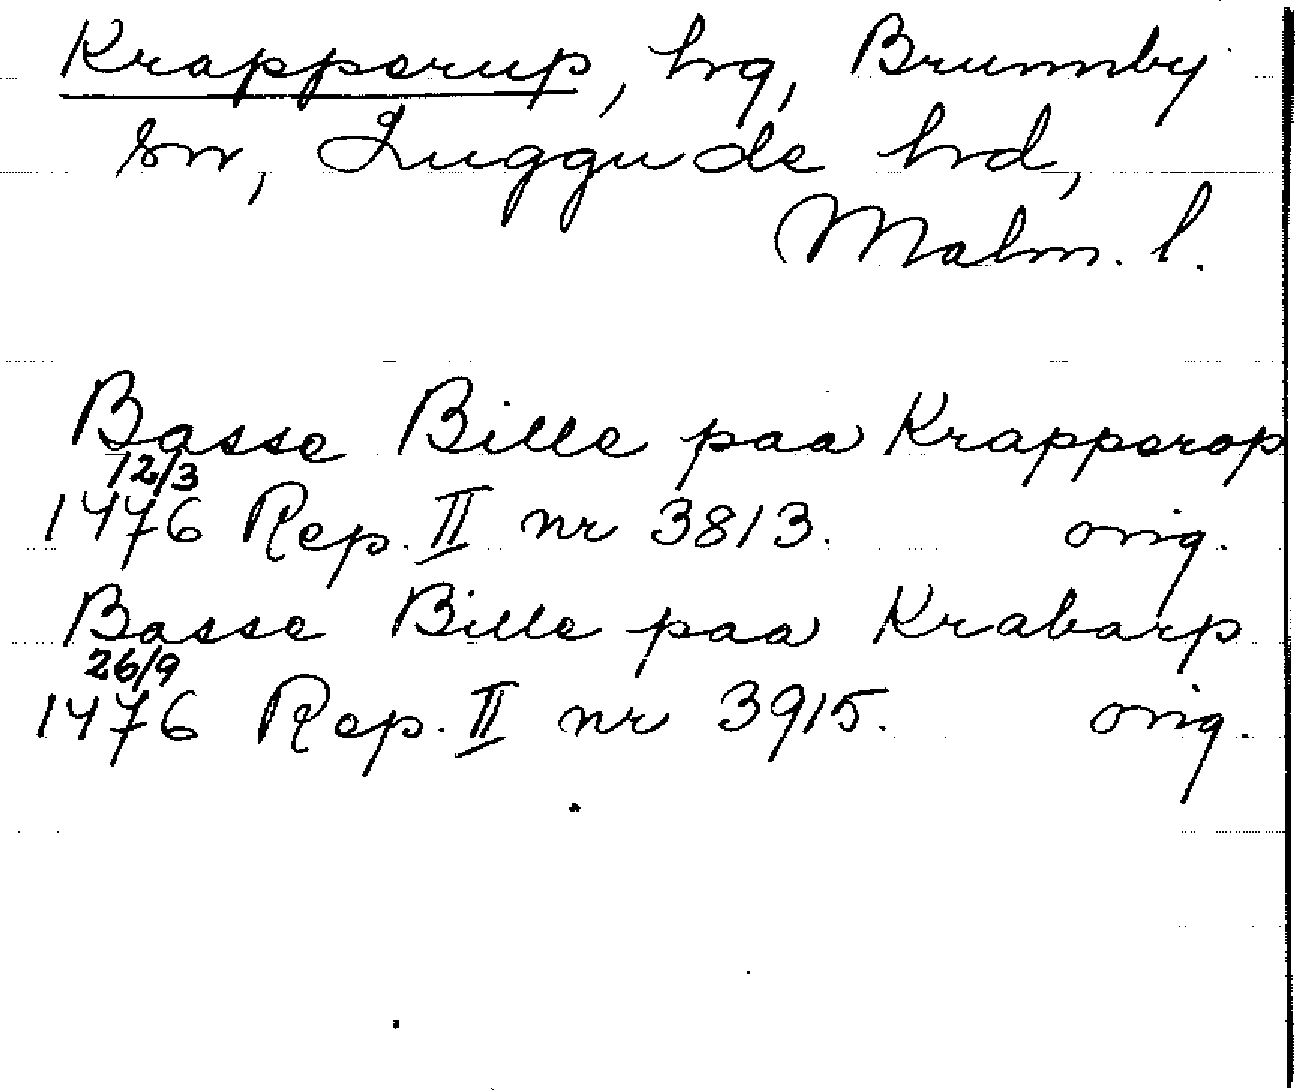 Krapperup, hg, Brunnby
sn, Luggude hrd,
Malm. l.
Basse Bille paa Krapperop
12/3
1476 Rep. II nr 3813. orig.
Basse Bille paa Krabarp
26/9
1476 Rep. II nr 3915. orig.